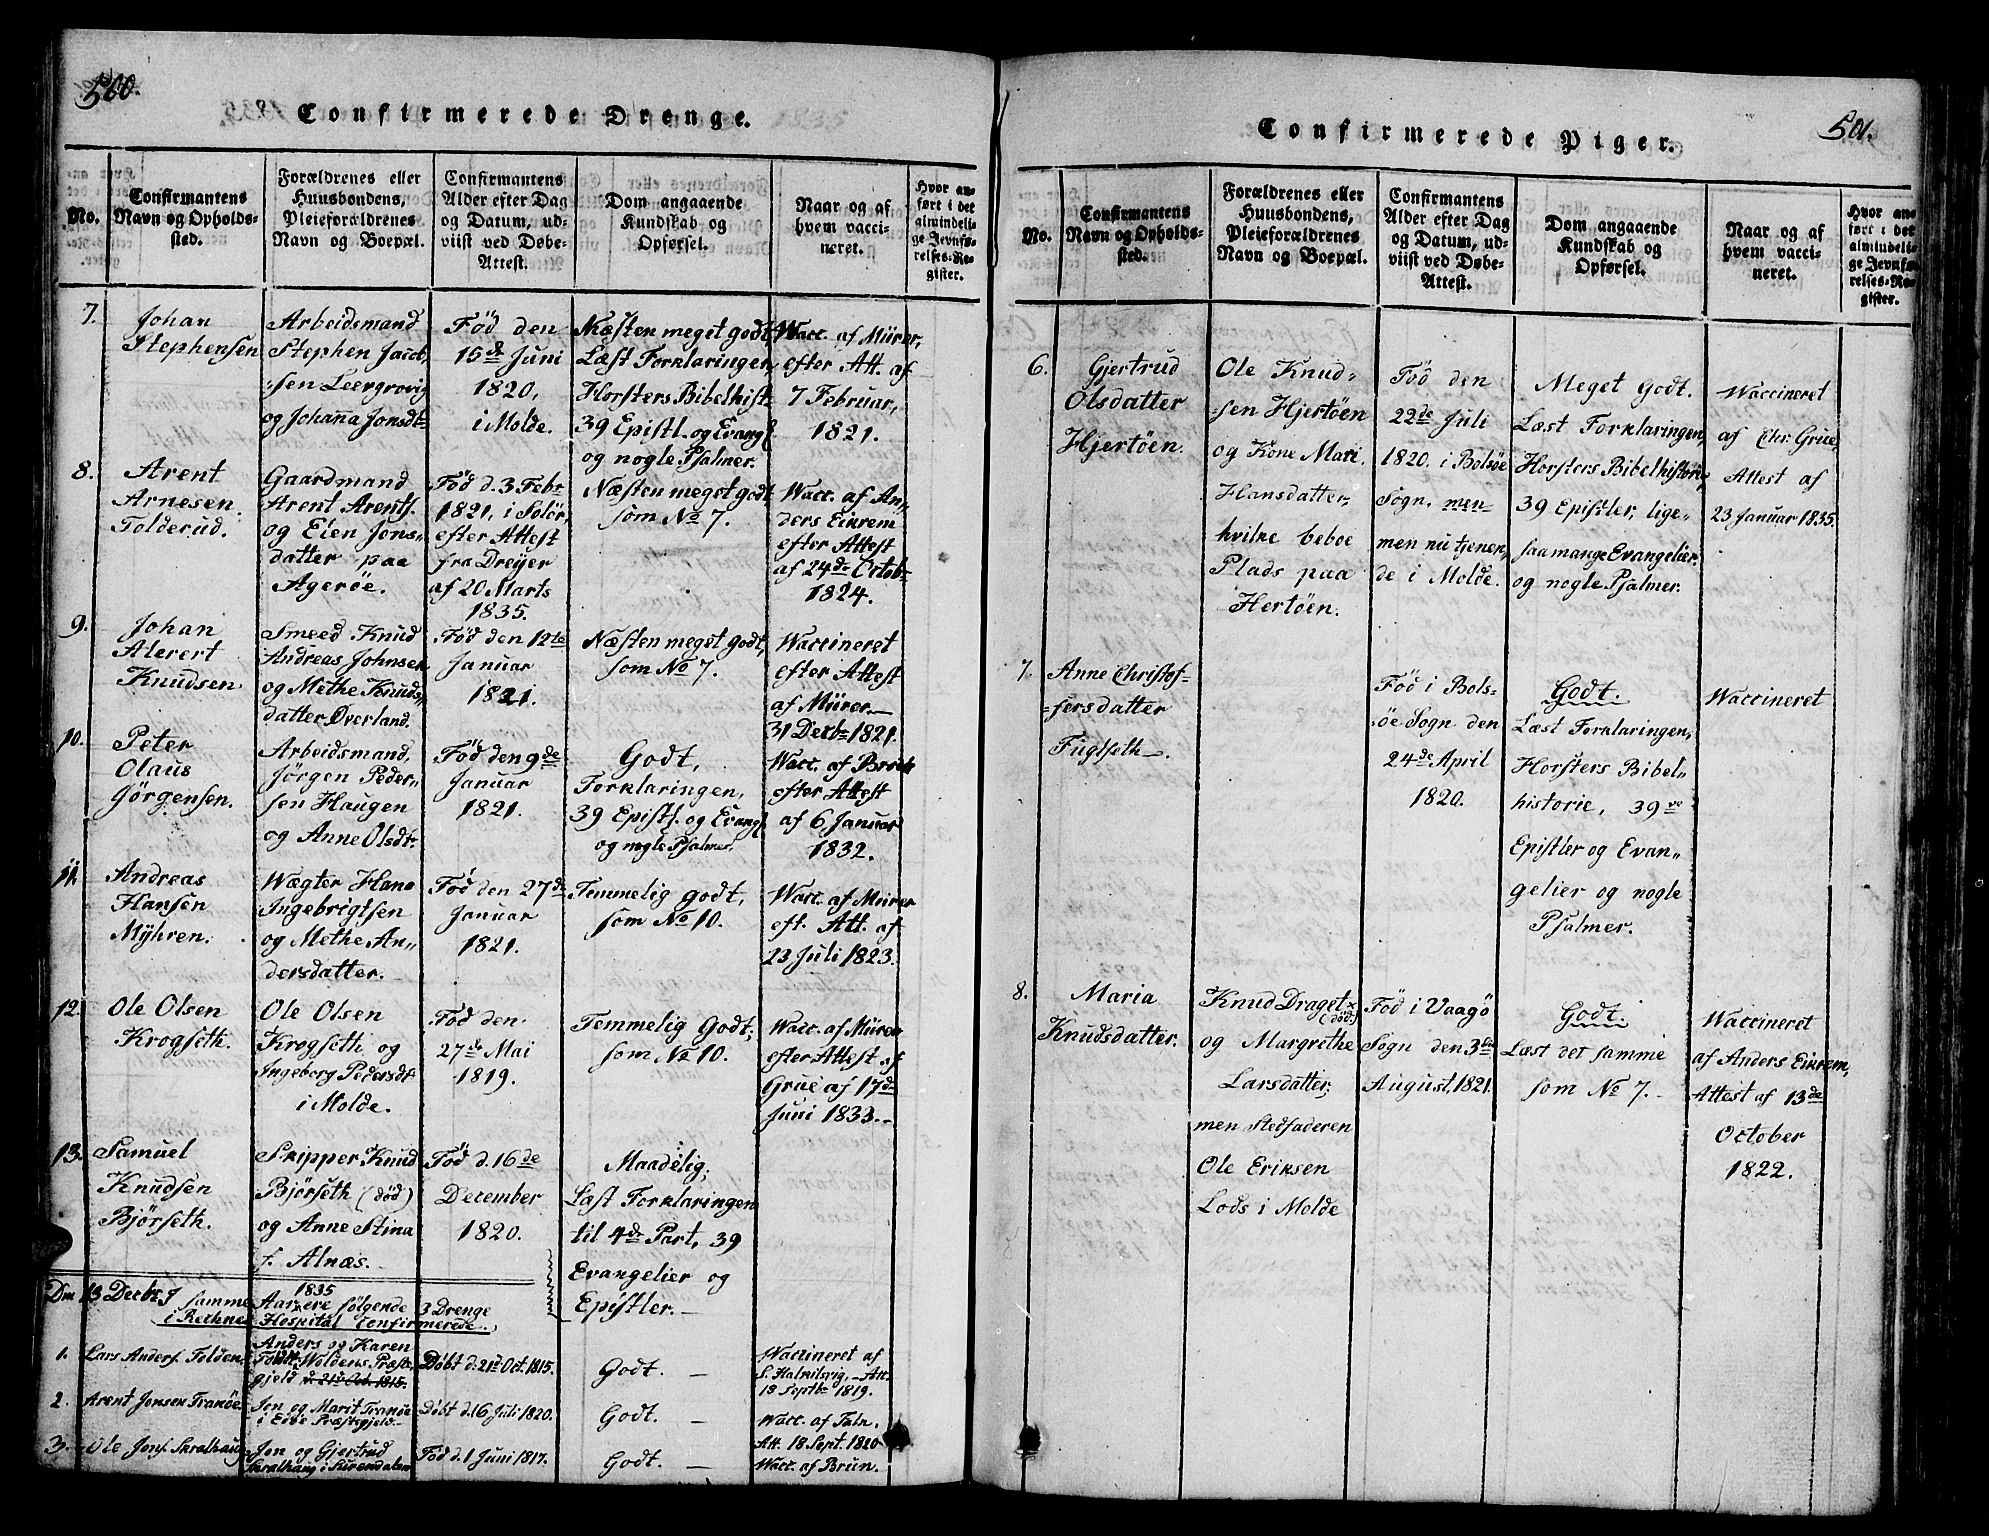 500.
Confirmerede Drenge.
No.
Confirmantens
Navn og Opholds-
sted.
Forældrenes eller
Huusbondens,
Pleieforældrenes
Navn og Boepæl.
Confirmantens
Alder efter Dag
og Datum, ud-
viist ved Døbe-
Attest.
Dom angaaende
Kundskab og
Opførsel.
Naar og af
hvem vacci-
neret.
Hvor an-
ført i det
almindeli-
ge Jevnfø-
relses-Re-
gister.
7.
Johan
Stephensen
Arbeidsmand
Stephen Jacob,
sen Leergrovig
og Johana Jonsdt.
Fød den
15de Juni
1820,
i Molde.
Næsten meget godt,
Læst Forklaringen,
Horsters Bibelhist.
39 Epistl. og Evang.
og nogle Psalmer.
Wacc. af Mürer,
efter Att. af
7 Februar,
1821.
8.
Arent
Arnesen
Tolderud.
Gaardmand
Arent Arents.
og Eien Jons-
datter paa
Agerøe.
Fød d. 3 Febr
1821, i Solör,
efter Attest
fra Dreyer
af 20 Marts
1835.
Næsten meget godt,
som No 7.
Wacc. af An-
ders Eikrem
efter Attest
af 24de Octob.
1824.
9.
Johan
Alevert
Knudsen
Smeed Knud
Andreas Johnsen
og Methe Knuds-
datter Øverland.
Fød den 12te
Januar
1821.
Næsten meget godt,
som No 7.
Waccineret
efter Attest
af Mürer.
31 Decbr 1821.
10.
Peter
Olaus
Görgensen.
Arbeidsmand,
Jörgen Peder-
sen Haugen
og Anne Olsdt.
Fød den 9de
Januar
1821.
Godt,
Forklaringen,
39 Epistl. og Evang.
og nogle Psalmer.
Wacc. af
efter Attest
af 6 Januar
1832.
11.
Andreas
Hansen
Mÿhren.
Wægter Hans
Ingebrigtsen
og Methe An-
dersdatter.
Fød den 27de
Januar
1821.
Temmelig godt,
som No 10.
Wacc. af Mürer
eft. Att. af
23 Juli 1823.
12.
Ole Olsen
Krogseth.
Ole Olsen
Krogseth og
Ingeborg Pedersdt.
i Molde.
Fød den
27de Mai
1819.
Temmelig Godt,
som No 10.
Wacc. af Mürer
efter Attest af
Grüe af 17de
Juni 1833.
13.
Samuel
Knudsen
Bjørseth.
Skipper Knud
Bjørseth (död)
og Anne Stina
f. Alnæs.
Fød d. 16de
December
1820.
Maadelig,
Læst Forklaringen
til 4de Part, 39
Evangelier og
Epistler.
Den 13 Decbr J samme Aar 1835 ere følgende 3 Drenge
i Reknes Hospital Confirmerede.
1.
Lars Anders. Tolden.
Anders og Karen
Woldens Præst-
gjeld d. 21de Oct. 1815.
Døbt d. 21de Oct. 1815.
Godt.
Waccineret af
S. Halnilsvig, Att.
18 Septbr 1819.
2.
Arent Jonsen Tranöe.
Jon og Marit Tranöe
i Edöe Præstgjeld.
Døbt d. 16 Juli 1820.
Godt.
Wacc. af Taln.
Att. 18 Sept. 1820
3.
Ole Jons. Skralhaug
Jon og Gjertrud
Skralhaug i Surendalen
Fød d. 1 Juni 1817.
Godt.
Wacc. af Brun.
501.
Confirmerede Piger.
No.
Confirmantens
Navn og Opholds-
sted.
Forældrenes eller
Huusbondens,
Pleieforældrenes
Navn og Boepæl.
Confirmantens
Alder efter Dag
og Datum, ud-
viist ved Døbe-
Attest.
Dom angaaende
Kundskab og
Opførsel.
Naar og af
hvem vacci-
neret.
Hvor an-
ført i det
almindeli-
ge Jevnfø-
relses-Re-
gister.
6.
Gjertrud
Olsdatter
Hjertöen.
Ole Knud-
sen Hjertöen
og Kone Mari
Hansdatter,
hvilke beboe
Plads paa
Hertöen.
Fød den
22de Juli
1820. i Bolsöe
Sogn, men-
men nu tjenen-
de i Molde.
Meget Godt.
Læst Forklaringen,
Horsters Bibelhistorie,
39 Epistler, lige-
saa mange Evangelier.
og nogle Psalmer.
Waccineret
af Chr. Grüe,
Attest af
23 Januar 1835.
7.
Anne Christof-
fersdatter
Fuglseth.
Fød i Bols-
öe Sogn den
24de April
1820.
Godt.
Læst Forklaringen,
Horsters Bibel-
historie, 39ve
Epistler og Evan-
gelier og nogle
Psalmer.
Waccineret
8.
Maria
Knudsdatter.
Knud Draget
(död)
og Margrethe
Larsdatter,
men Stedfaderen
Ole Eriksen
Lods i Molde
Fød i Vaagö
Sogn den 3de
August, 1821.
Godt.
Læst det samme
som No 7.
Waccineret
af Anders Eikrem,
Attest af 13de
October
1822.